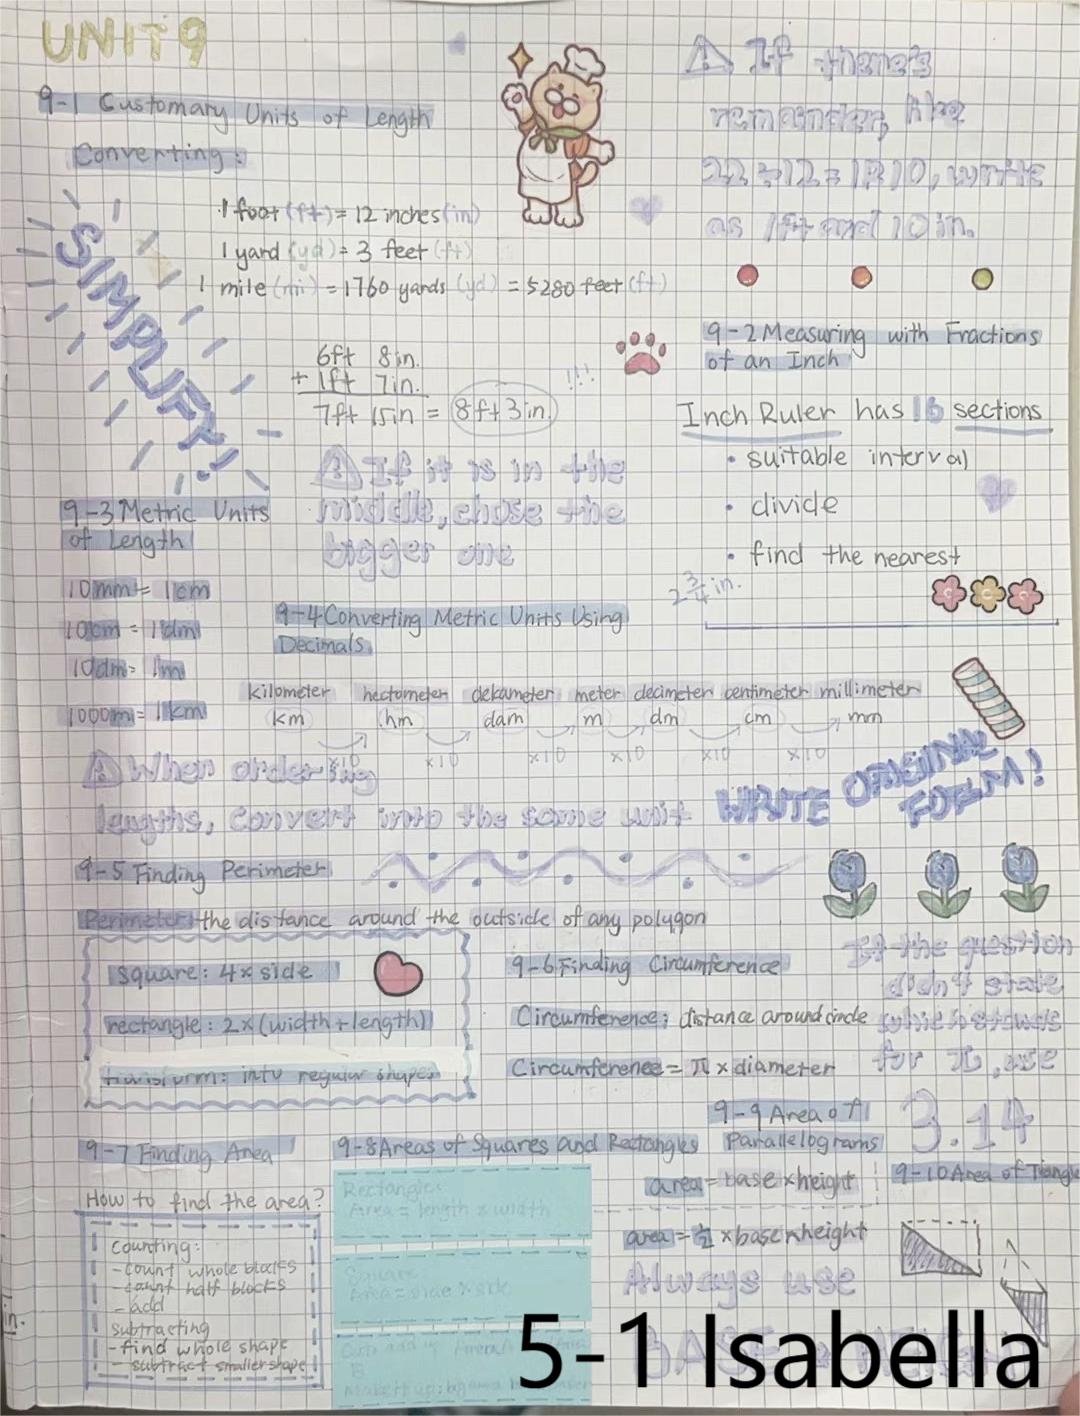 UNIT 9
9-1 Customary Units of Length
Converting:
1 foot (ft) = 12 inches (in)
1 yard (yd) = 3 feet (ft)
1 mile (mi) = 1760 yards (yd) = 5280 feet (ft)
SIMPLIFY!
6ft 8in.
+ 1ft 7in.
7ft 15in = 8ft 3in.
!!!
If it is in the
middle, chose the
bigger one
If there's
remainder, like
22÷12=1R10, write
as 1ft and 10 in.
9-2 Measuring with Fractions
of an Inch
Inch Ruler has 16 sections
• suitable interval
• divide
• find the nearest
2 3/4 in.
9-3 Metric Units
of Length
10mm = 1cm
10cm = 1dm
10dm = 1m
1000m = 1km
9-4 Converting Metric Units Using
Decimals
kilometer hectometer dekameter meter decimeter centimeter millimeter
km hm dam m dm cm mm
×10 ×10 ×10 ×10 ×10 ×10
When ordering
lengths, convert into the same unit
WRITE ORIGINAL
FORM!
9-5 Finding Perimeter
Perimeter: the distance around the outside of any polygon
square: 4× side
rectangle: 2×(width+length)
transform: into regular shapes
9-6 Finding Circumference
Circumference: distance around circle
Circumference = π × diameter
If the question
didn't state
which stands
for π, use
3.14
9-7 Finding Area
How to find the area?
counting:
- count whole blocks
- count half blocks
- add
subtracting
- find whole shape
- subtract smaller shape
9-8 Areas of Squares and Rectangles
Rectangle:
Area = length × width
Square:
Area = side × side
9-9 Area of
Parallelograms
area = base × height
9-10 Area of Triangle
area = 1/2 × base × height
Always use
BASE
in.
5-1 Isabella